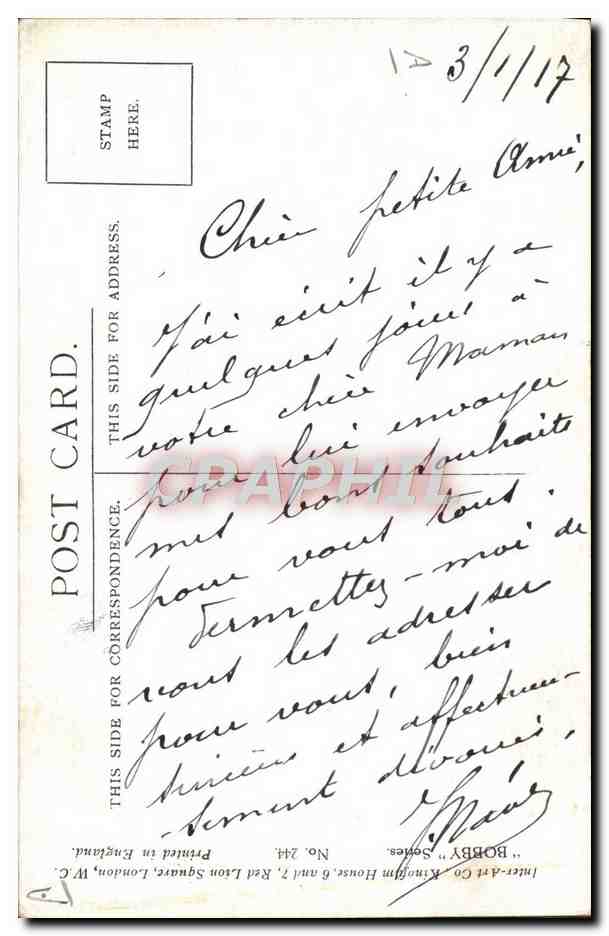 3/1/17
Chère petite Amie,
J'ai écrit il y a
quelques jours à
votre chère Maman
pour lui envoyer
mes bons souhaits
pour vous tous.
Permettez-moi de
vous les adresser
pour vous, bien
sincères et affectueu-
sement dévoués,
POST CARD.
THIS SIDE FOR CORRESPONDENCE.
THIS SIDE FOR ADDRESS.
STAMP
HERE.
CPAPHIL
"BOBBY" Series. No. 244. Printed in England.
Inter-Art Co., Kingham House, 6 and 7, Red Lion Square, London, W.C.